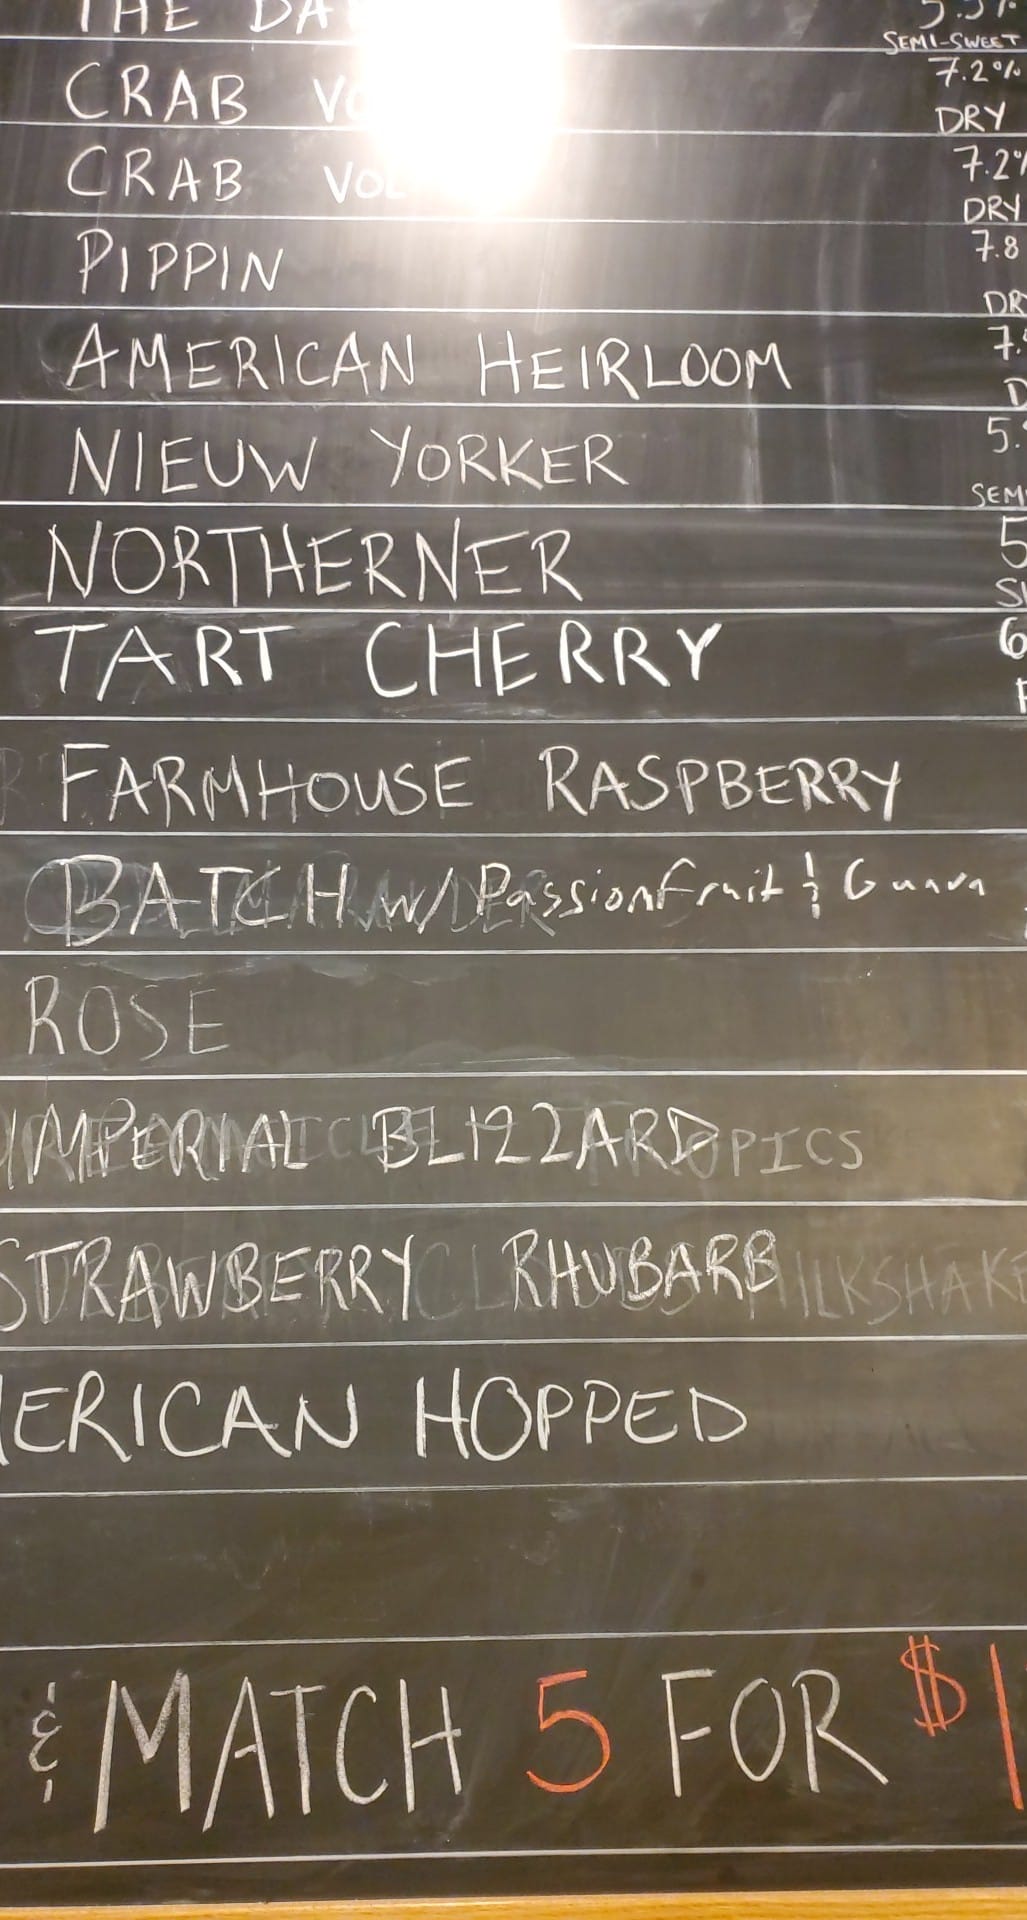 THE DA 5.5%
SEMI-SWEET
CRAB VO 7.2%
DRY
CRAB VOL 7.2%
DRY
PIPPIN 7.8
DR
AMERICAN HEIRLOOM 7.
D
NIEUW YORKER 5.
SEMI
NORTHERNER 5
TART CHERRY 6
FARMHOUSE RASPBERRY
BATCH w/ Passionfruit & Guava
ROSE
IMPERIAL BLIZZARD
STRAWBERRY RHUBARB MILKSHAKE
MERICAN HOPPED
& MATCH 5 FOR $1